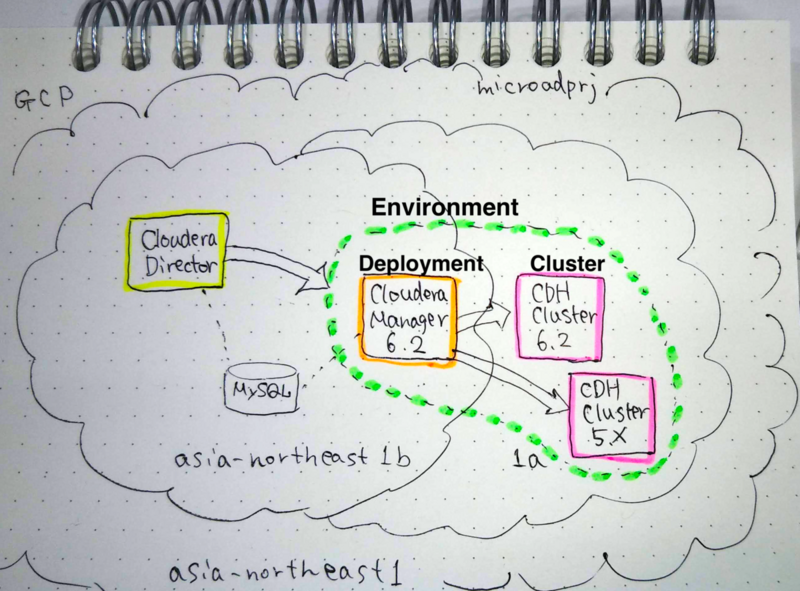 GCP
microadprj
Environment
Cloudera
Director
Deployment
Cloudera
Manager
6.2
Cluster
CDH
Cluster
6.2
MySQL
CDH
Cluster
5.X
asia-northeast 1b
1a
asia-northeast1